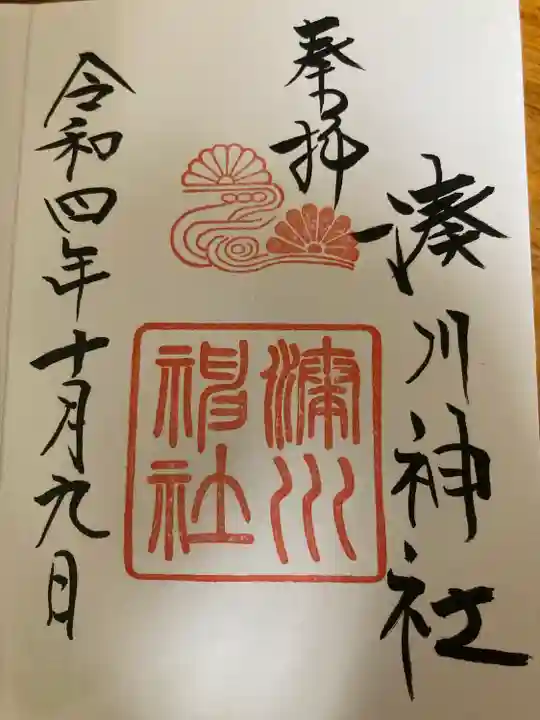 奉拝
湊川神社
湊川
神社
令和四年十月九日